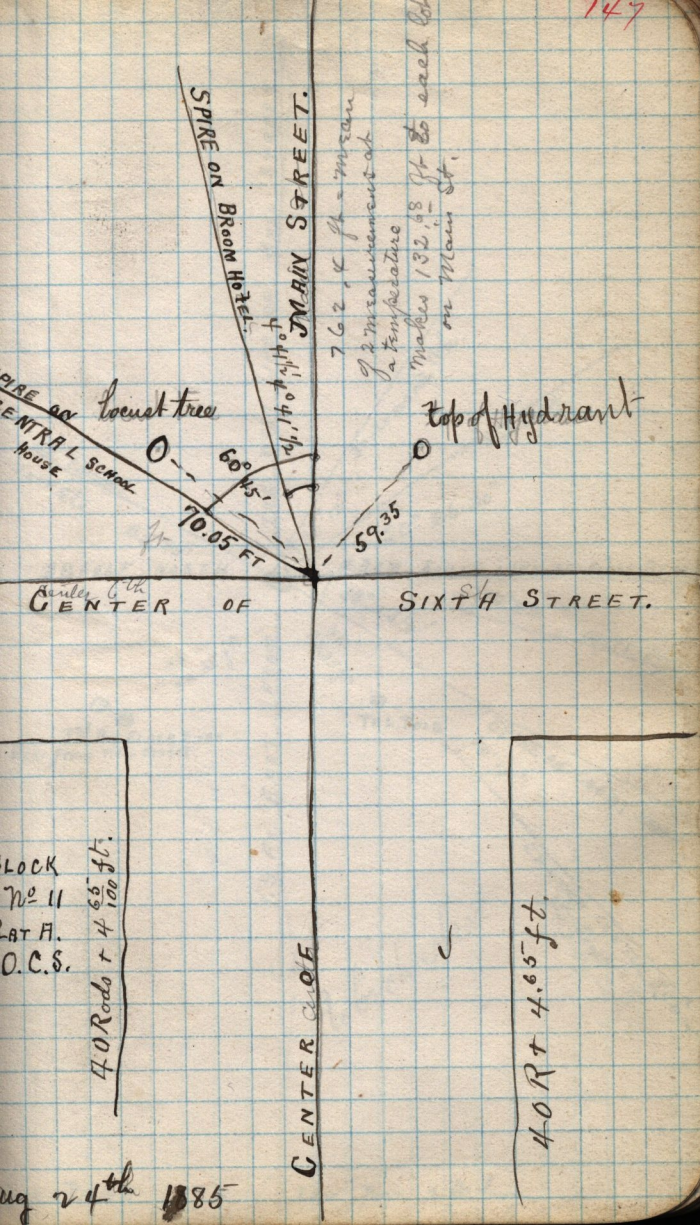 147
SPIRE ON BROOM HOTEL.
MAIN STREET.
762.4 ft = mean
of 2 measurements at
a temperature
Makes 132.68 ft to each lot
on Main St.
4° 41' ½
SPIRE ON
CENTRAL SCHOOL
HOUSE
locust tree
60° 45'
70.05 FT
ft
top of Hydrant
59.35
Center 6th
CENTER OF SIXTH STREET.
BLOCK
No 11
PLAT A.
O.C.S.
40 Rods + 4 65/100 ft.
CENTER OF
40 R + 4.65 ft.
Aug 24th 1885